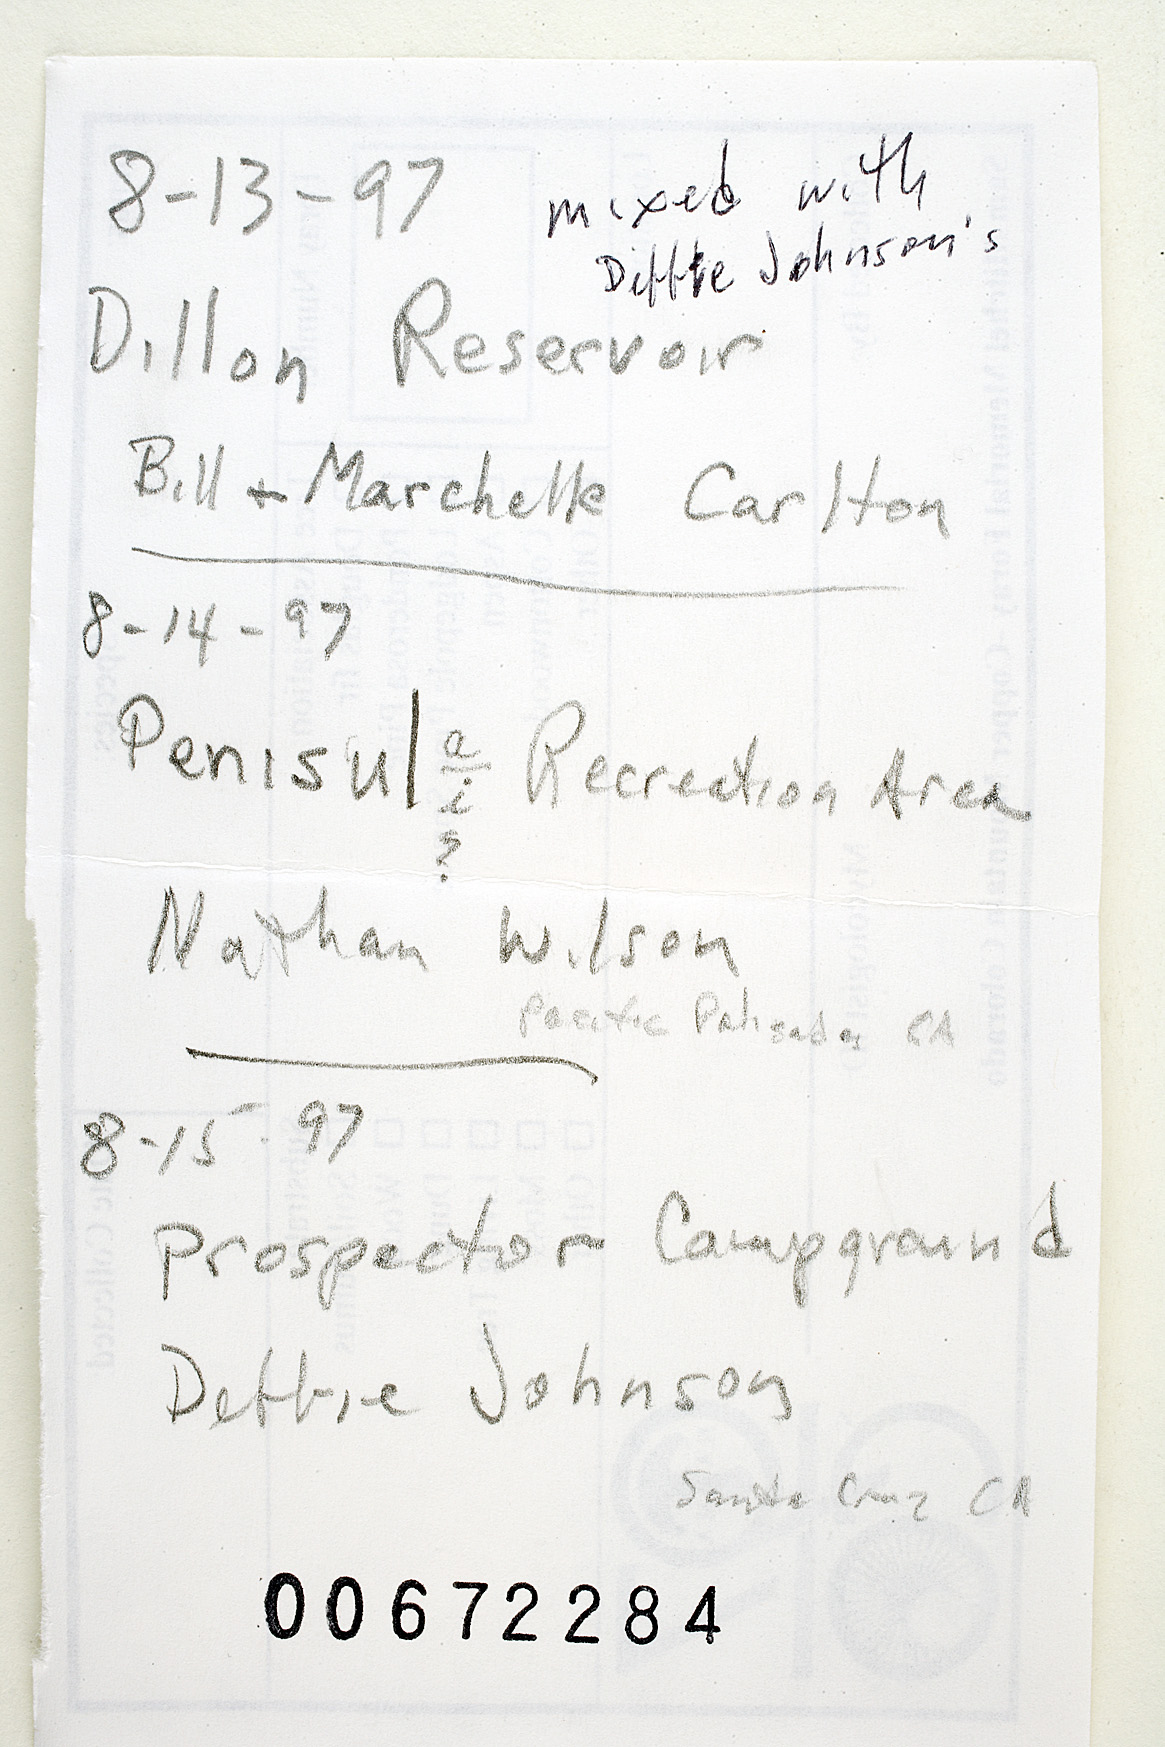 8-13-97
mixed with
Debbie Johnson's
Dillon Reservoir
Bill + Marchelle Carlton
8-14-97
Penisul a/i ? Recreation Area
Nathan Wilson
Pacific Palisades CA
8-15-97
Prospector Campground
Debbie Johnson
Santa Cruz CA
00672284